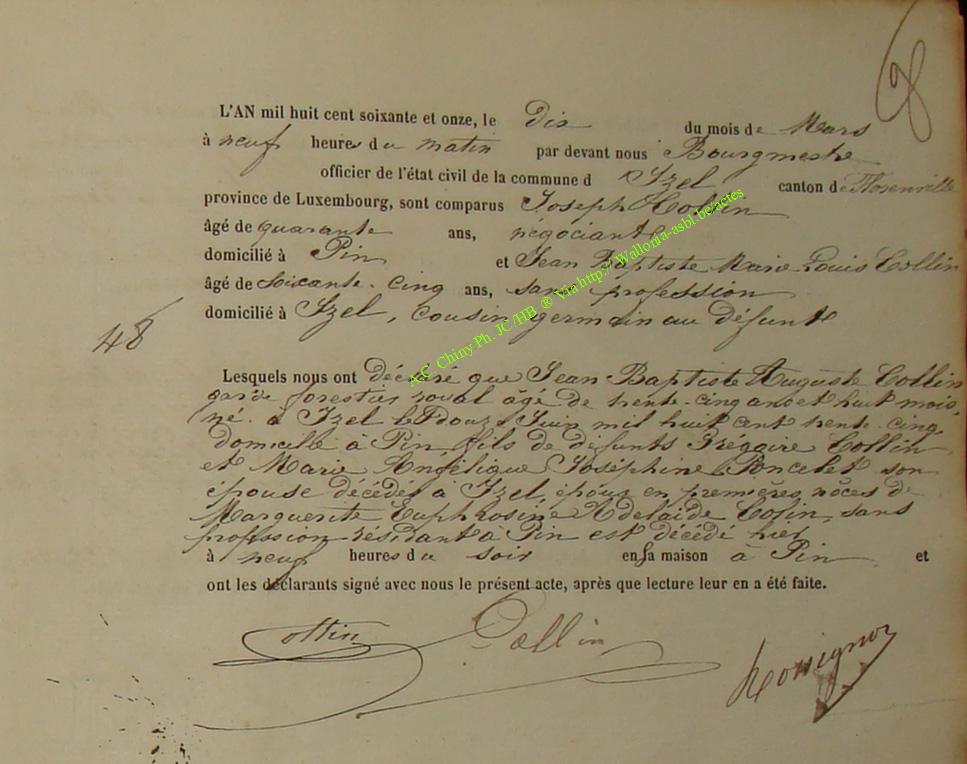 L'AN mil huit cent soixante et onze, le Dix du mois de Mars
à neuf heures du matin par devant nous Bourgmestre
officier de l'état civil de la commune d Izel canton de Florenville
province de Luxembourg, sont comparus Joseph Collin
âgé de quarante ans, négociant
domicilié à Pin et Jean Baptiste Marie Louis Collin
âgé de soixante-cinq ans, sans profession
domicilié à Izel, cousin germain au défunt
48
Lesquels nous ont déclaré que Jean-Baptiste Auguste Collin
garde forestier royal âgé de trente-cinq ans et huit mois,
né à Izel le Douze Juin mil huit cent trente-cinq
domicilié à Pin, fils de défunts Grégoire Collin
et Marie Angélique Joséphine Poncelet son
épouse décédés à Izel, époux en premières nôces de
Marguerite Euphrosine Adelaïde Colin, sans
profession résidant à Pin est décédé hier
à neuf heures du soir en sa maison à Pin et
ont les déclarants signé avec nous le présent acte, après que lecture leur en a été faite.
Collin Collin Rossignon
AC Chiny Ph. JC/HB ® Via http://Wallonia-asbl-be/actes